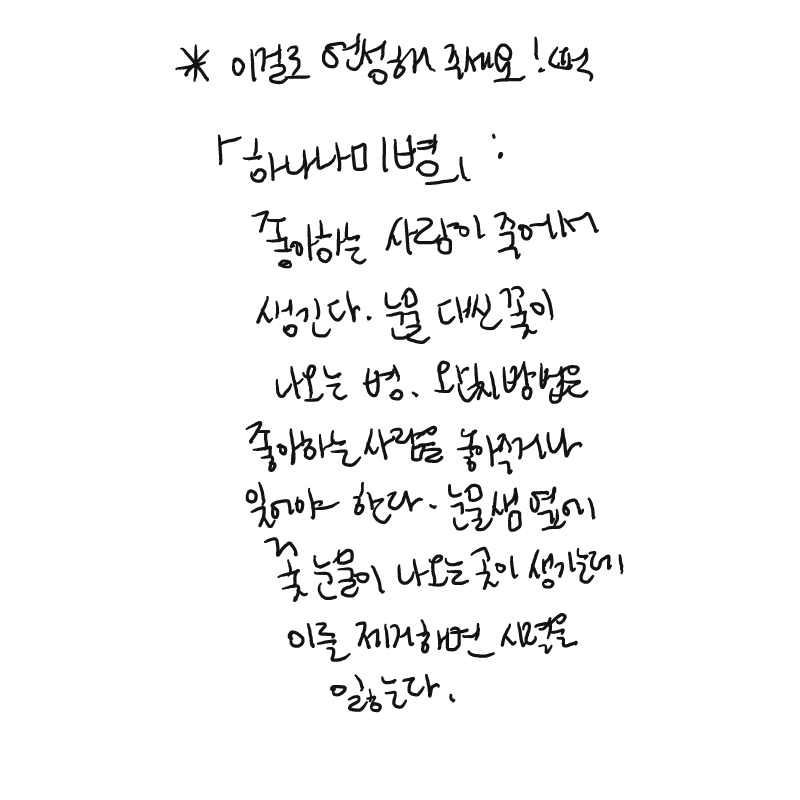 * 이걸로 연성해 주세요! (떡
「하나나미병」:
좋아하는 사람이 죽에서
생긴다. 눈물 대신 꽃이
나오는 병. 완치방법은
좋아하는사람을 놓아주거나
잊어야 한다. 눈물샘 옆에
꽃눈물이 나오는 곳이 생기는데
이를 제거하면 시력을
잃는다.